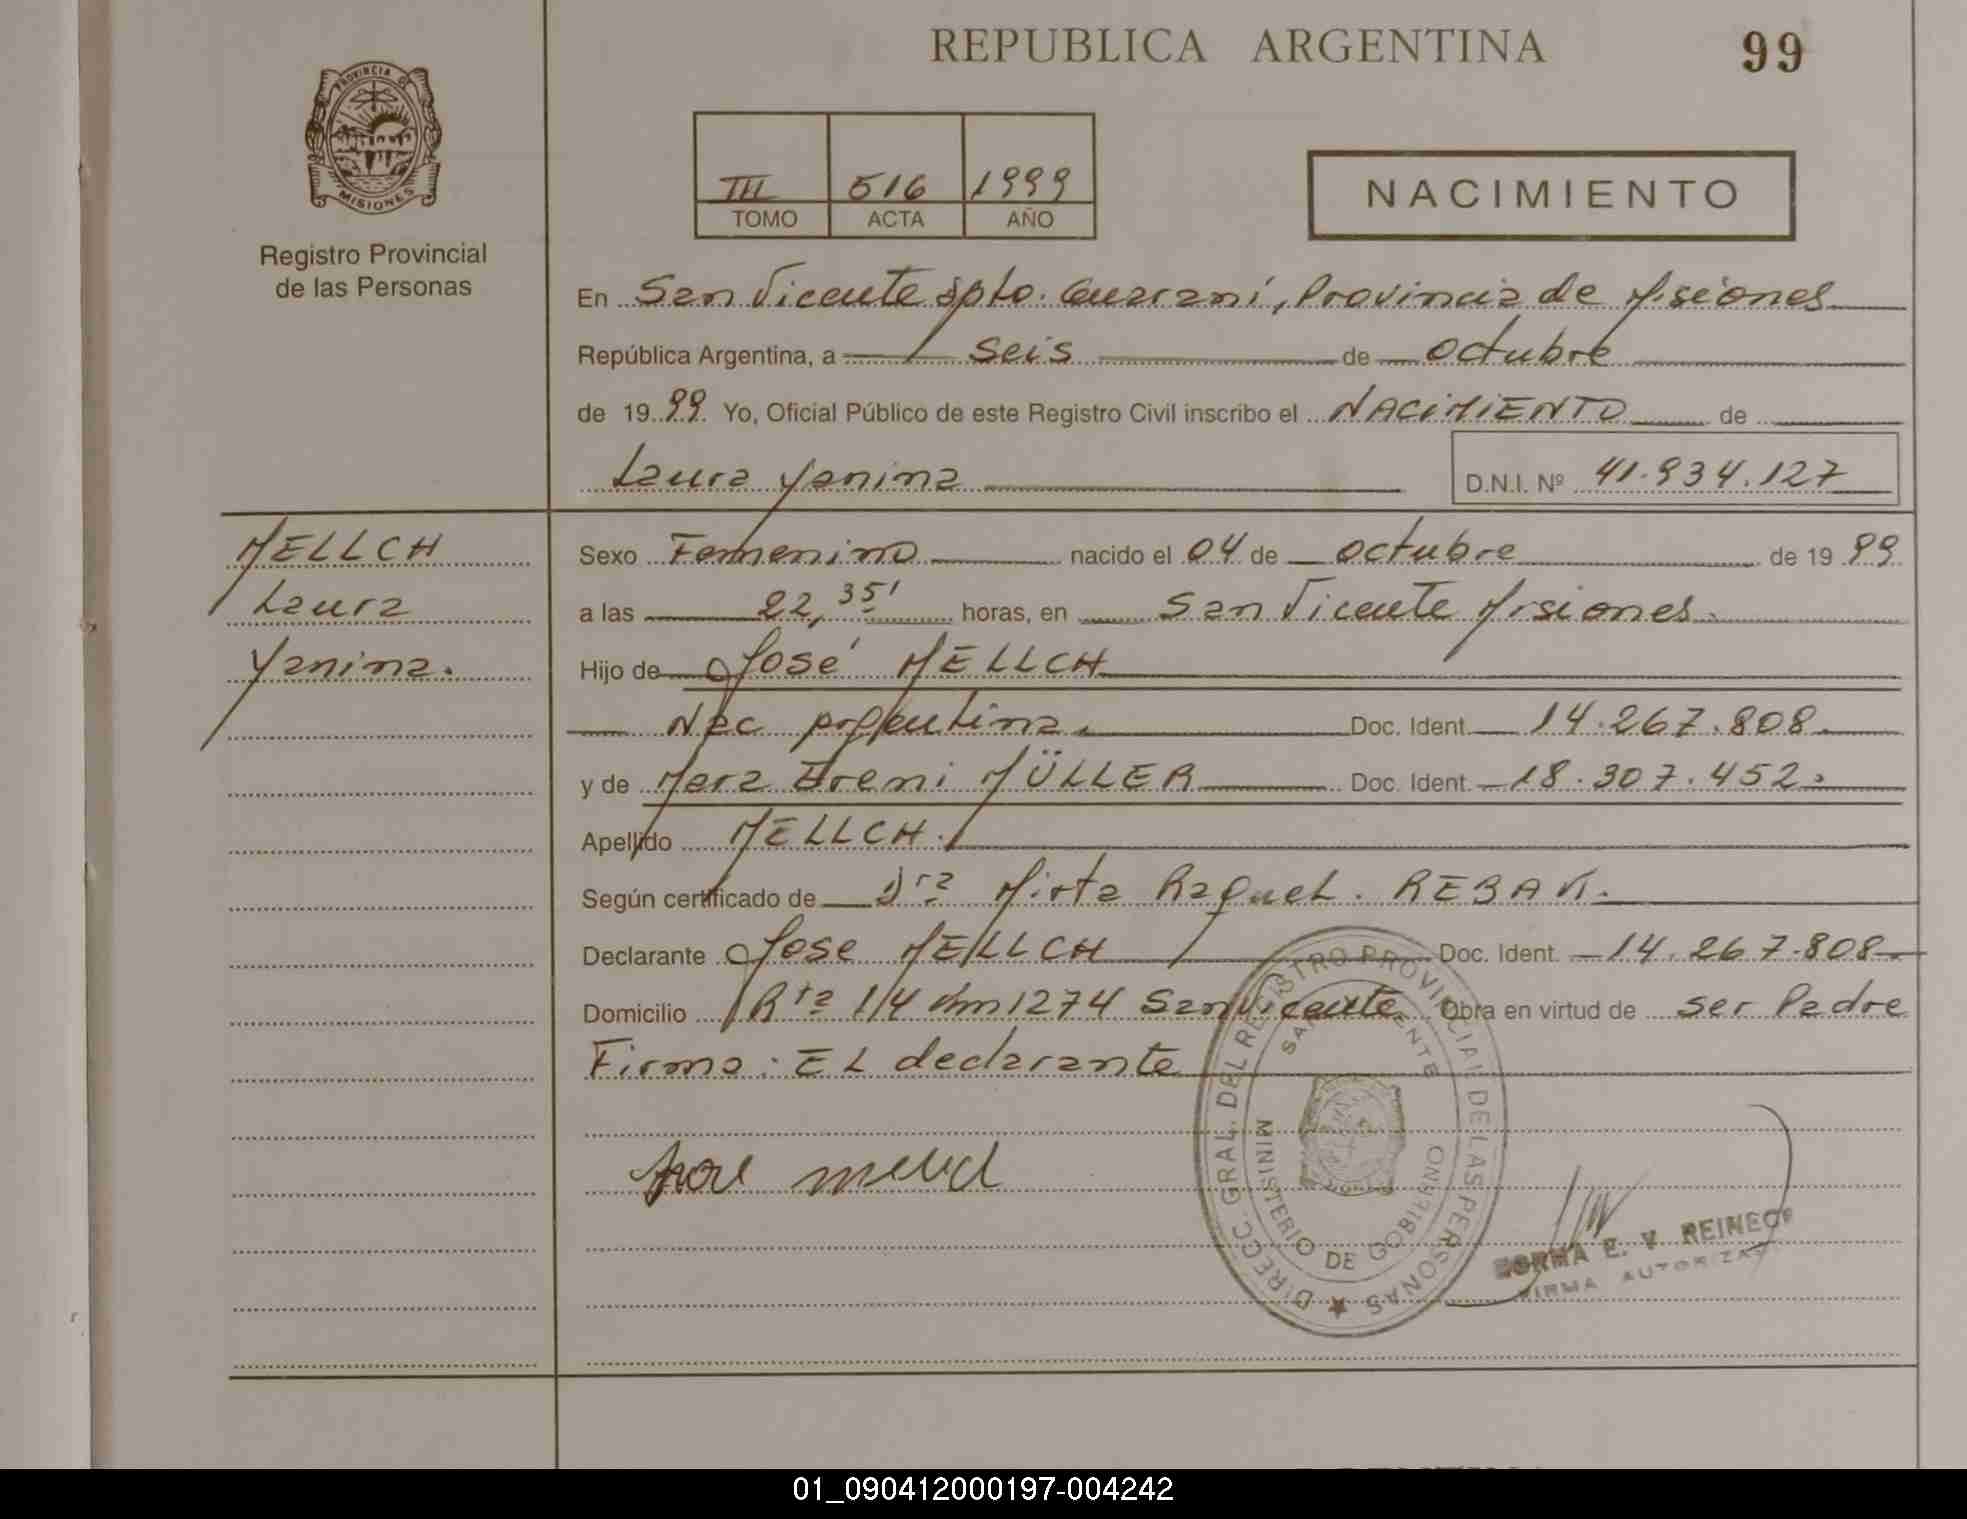 REPUBLICA ARGENTINA
99
PROVINCIA DE
MISIONES
Registro Provincial
de las Personas
III 516 1999
TOMO ACTA AÑO
NACIMIENTO
En San Vicente Dpto. Guaraní, Provincia de Misiones
República Argentina, a seis de octubre
de 1999 Yo, Oficial Público de este Registro Civil inscribo el NACIMIENTO de
Laura Yanina
D.N.I. Nº 41.934.127
MELLCH
Laura
Yanina.
Sexo Femenino nacido el 04 de octubre de 1999
a las 22,35' horas, en San Vicente Misiones.
Hijo de José MELLCH
Nac Argentina. Doc. Ident. 14.267.808.
y de Mara Ereni MÜLLER Doc. Ident. 18.307.452.
Apellido MELLCH.
Según certificado de Dra Mirta Raquel. REBAK.
Declarante Jose MELLCH Doc. Ident. 14.267.808
Domicilio Rta 14 km 1274 San Vicente Obra en virtud de ser Padre
Firma: EL declarante
DIRECC. GRAL. DEL REGISTRO PROVINCIAL DE LAS PERSONAS
SAN VICENTE
MINISTERIO DE GOBIERNO
NORMA E. V. 
FIRMA AUTORIZA
01_090412000197-004242